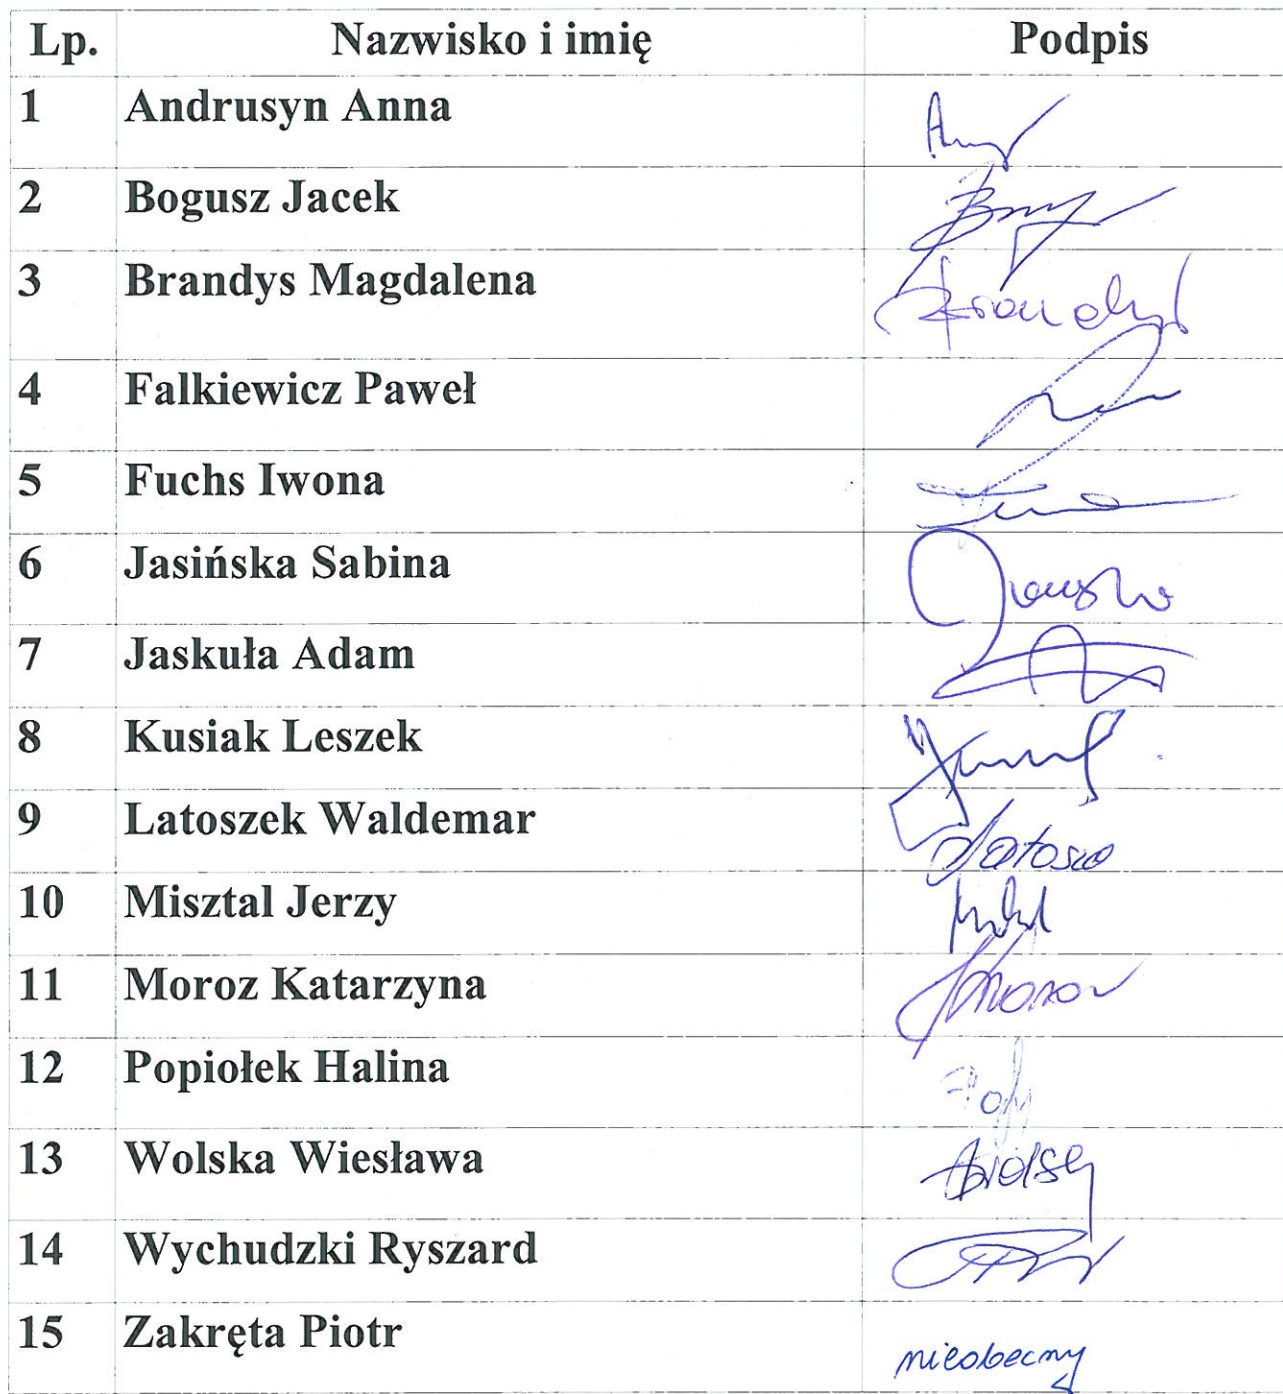 Lp. Nazwisko i imię Podpis
1 Andrusyn Anna
2 Bogusz Jacek
3 Brandys Magdalena
4 Falkiewicz Paweł
5 Fuchs Iwona
6 Jasińska Sabina
7 Jaskuła Adam
8 Kusiak Leszek
9 Latoszek Waldemar
10 Misztal Jerzy
11 Moroz Katarzyna
12 Popiołek Halina
13 Wolska Wiesława
14 Wychudzki Ryszard
15 Zakręta Piotr nieobecny